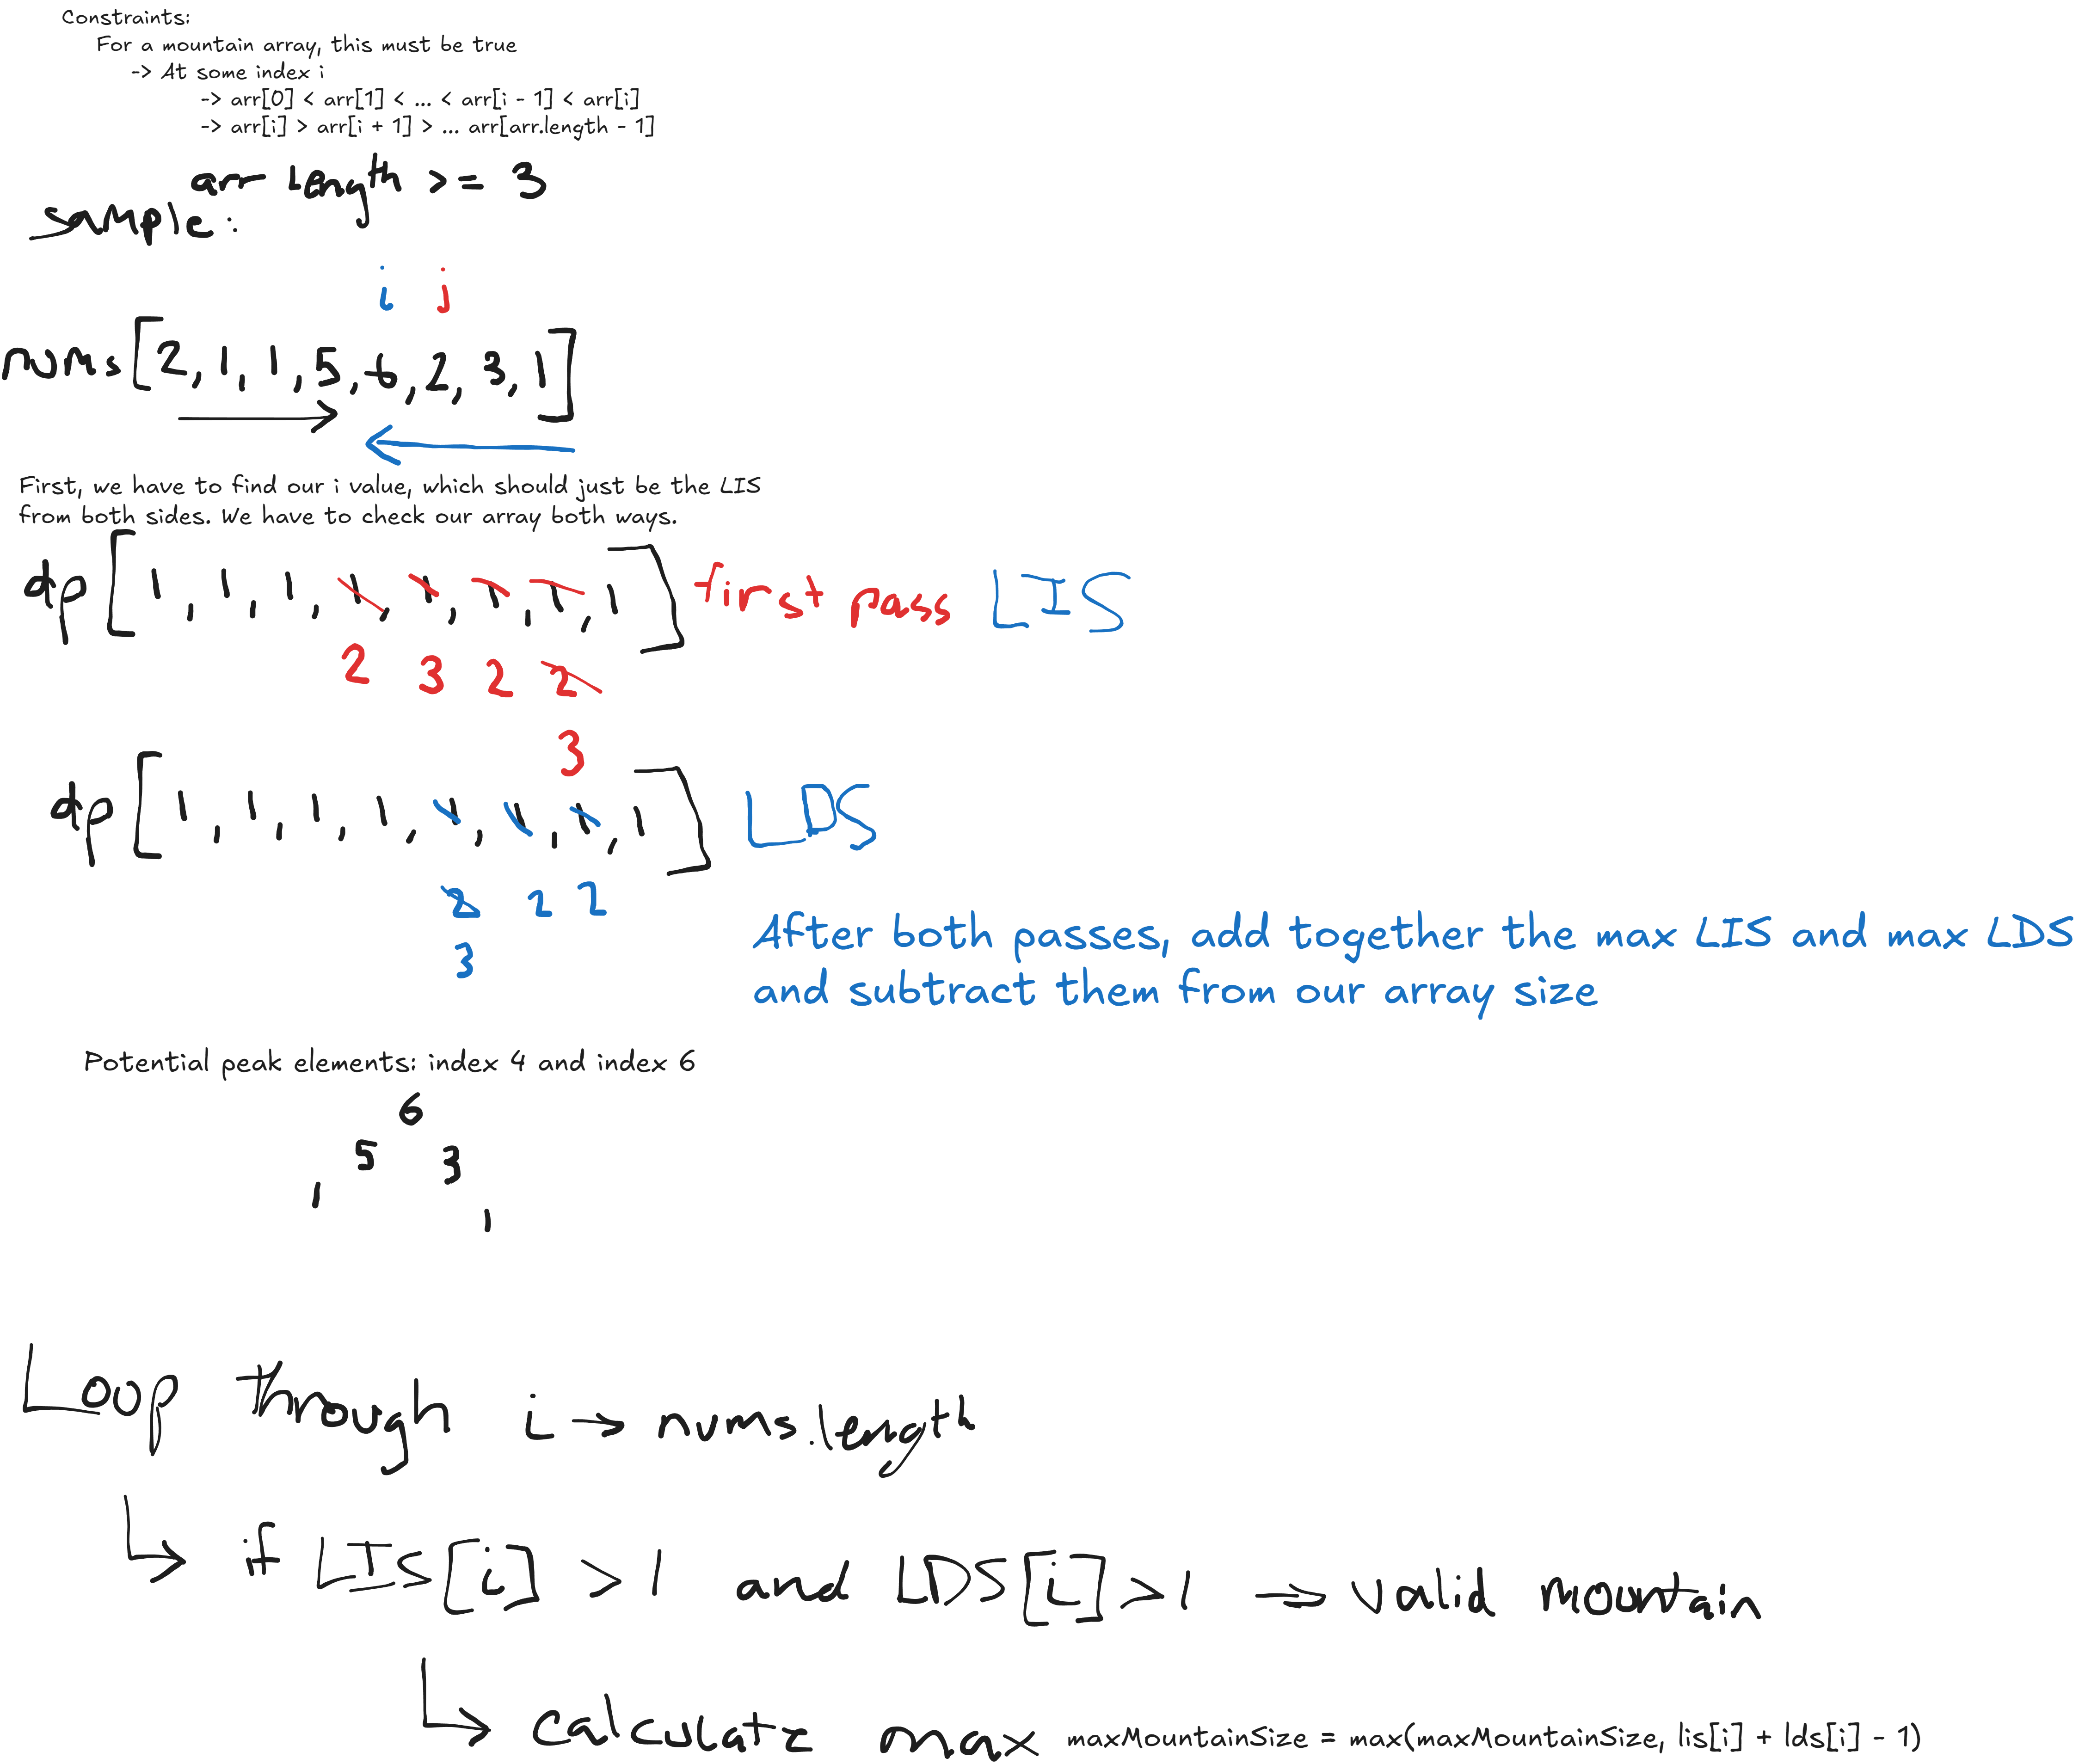 Constraints:
For a mountain array, this must be true
-> At some index i
-> arr[0] < arr[1] < ... < arr[i - 1] < arr[i]
-> arr[i] > arr[i + 1] > ... arr[arr.length - 1]
arr length >= 3
sample:
i j
nums[2,1,1,5,6,2,3,1]
First, we have to find our i value, which should just be the LIS
from both sides. We have to check our array both ways.
dp[1,1,1,1,1,1,1,1] first pass LIS
2 3 2 2
3
dp[1,1,1,1,1,1,1,1] LDS
2 2 2
3
After both passes, add together the max LIS and max LDS
and subtract them from our array size
Potential peak elements: index 4 and index 6
6
5 3
1
1
Loop through i → nums.length
↳ if LIS[i] >1 and LDS[i]>1 ⇒ valid mountain
↳ calculate max maxMountainSize = max(maxMountainSize, lis[i] + lds[i] - 1)